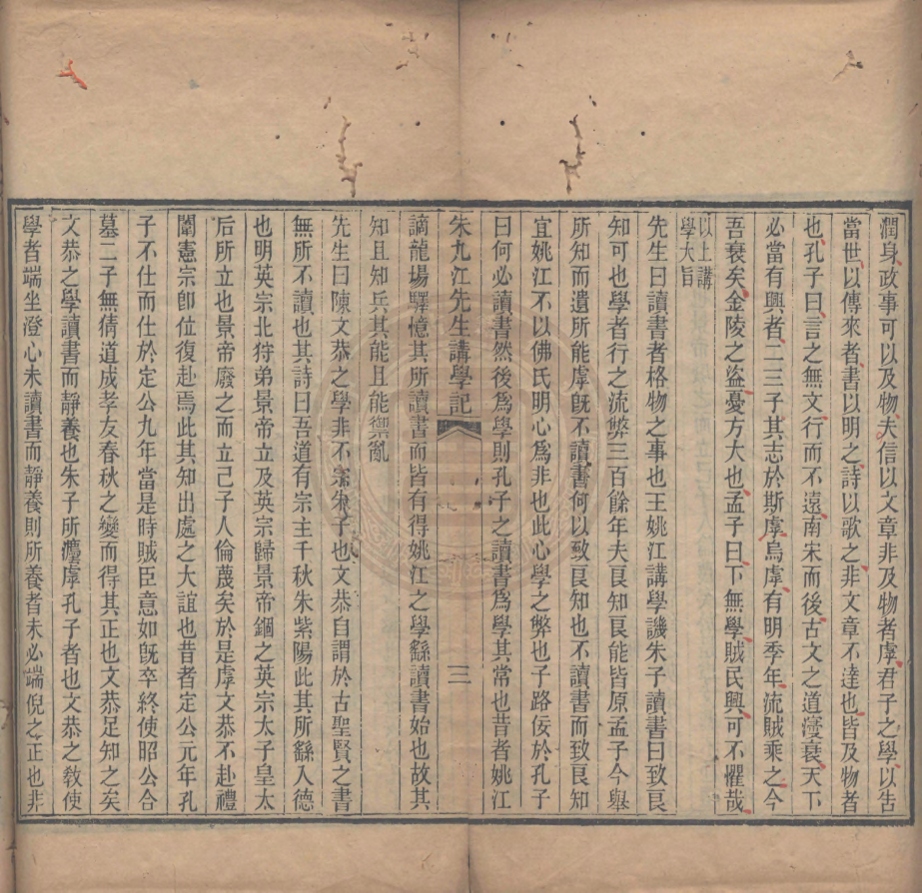 潤身政事可以及物夫信以文章非及物者虖君子之學以告
當世以傳來者書以明之詩以歌之非文章不達也皆及物者
也孔子曰言之無文行而不遠南宋而後古文之道寖衰天下
必當有興者二三子其志於斯虖烏虖有明季年流賊乘之今
吾衰矣金陵之盜憂方大也孟子曰下無學賊民興可不懼哉
以上講
學大旨
先生曰讀書者格物之事也王姚江講學譏朱子讀書曰致良
知可也學者行之流弊三百餘年夫良知良能皆原孟子今舉
所知而遺所能虖旣不讀書何以致良知也不讀書而致良知
宜姚江不以佛氏明心爲非也此心學之弊也子路佞於孔子
曰何必讀書然後爲學則孔子之讀書爲學其常也昔者姚江
朱九江先生講學記
三
謫龍場驛憶其所讀書而皆有得姚江之學繇讀書始也故其
知且知兵其能且能禦亂
先生曰陳文恭之學非不宗朱子也文恭自謂於古聖賢之書
無所不讀也其詩曰吾道有宗主千秋朱紫陽此其所繇入德
也明英宗北狩弟景帝立及英宗歸景帝錮之英宗太子皇太
后所立也景帝廢之而立己子人倫蔑矣於是虖文恭不赴禮
闈憲宗卽位復赴焉此其知出處之大誼也昔者定公元年孔
子不仕而仕於定公九年當是時賊臣意如旣卒終使昭公合
墓二子無猜道成孝友春秋之變而得其正也文恭足知之矣
文恭之學讀書而靜養也朱子所法虖孔子者也文恭之敎使
學者端坐澄心未讀書而靜養則所養者未必端倪之正也非